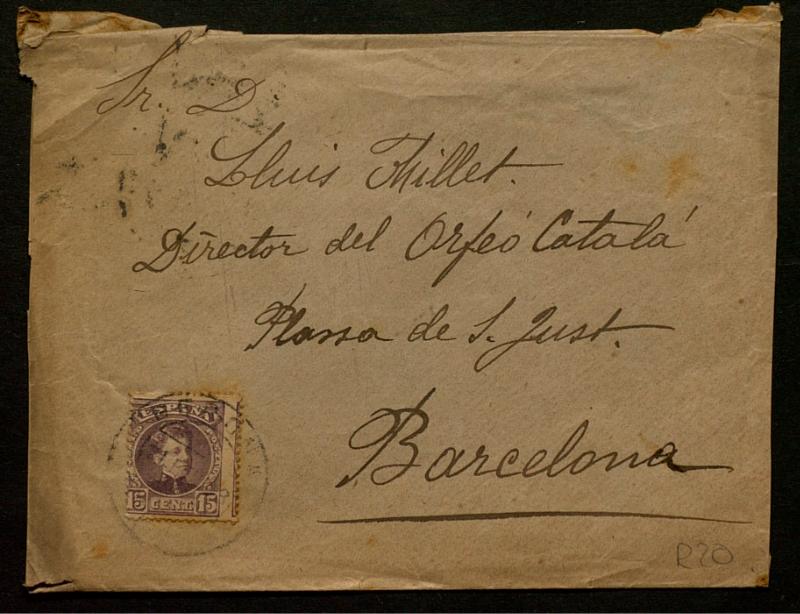 Sr. D.
Lluis Millet.
Director del Orfeó Catalá
Plassa de S. Just.
Barcelona
ESPAÑA
15 CENT. 15
R20